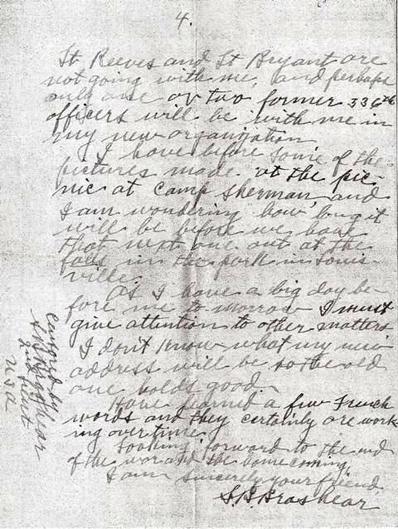 4.
Lt Reeves and Lt Bryant are
not going with me, and perhaps
only one or two former 336th
officers will be with me in
my new organization
I have before some of the
pictures made at the pic-
nic at Camp Sherman, and
I am wondering how long it
will be before we have
that next one out at the
falls in the park in Louis-
ville.
As I have a big day be-
fore me tomorrow I must
give attention to other matters
I don't know what my new
address will be so the old
one holds good.
Have learned a few French
words and they certainly are work-
ing over time.
Looking forward to the end
of the war and the homecoming.
I am sincerely your friend
S.B. Brashear
Censored by
Brashear
2nd Lieut
USA